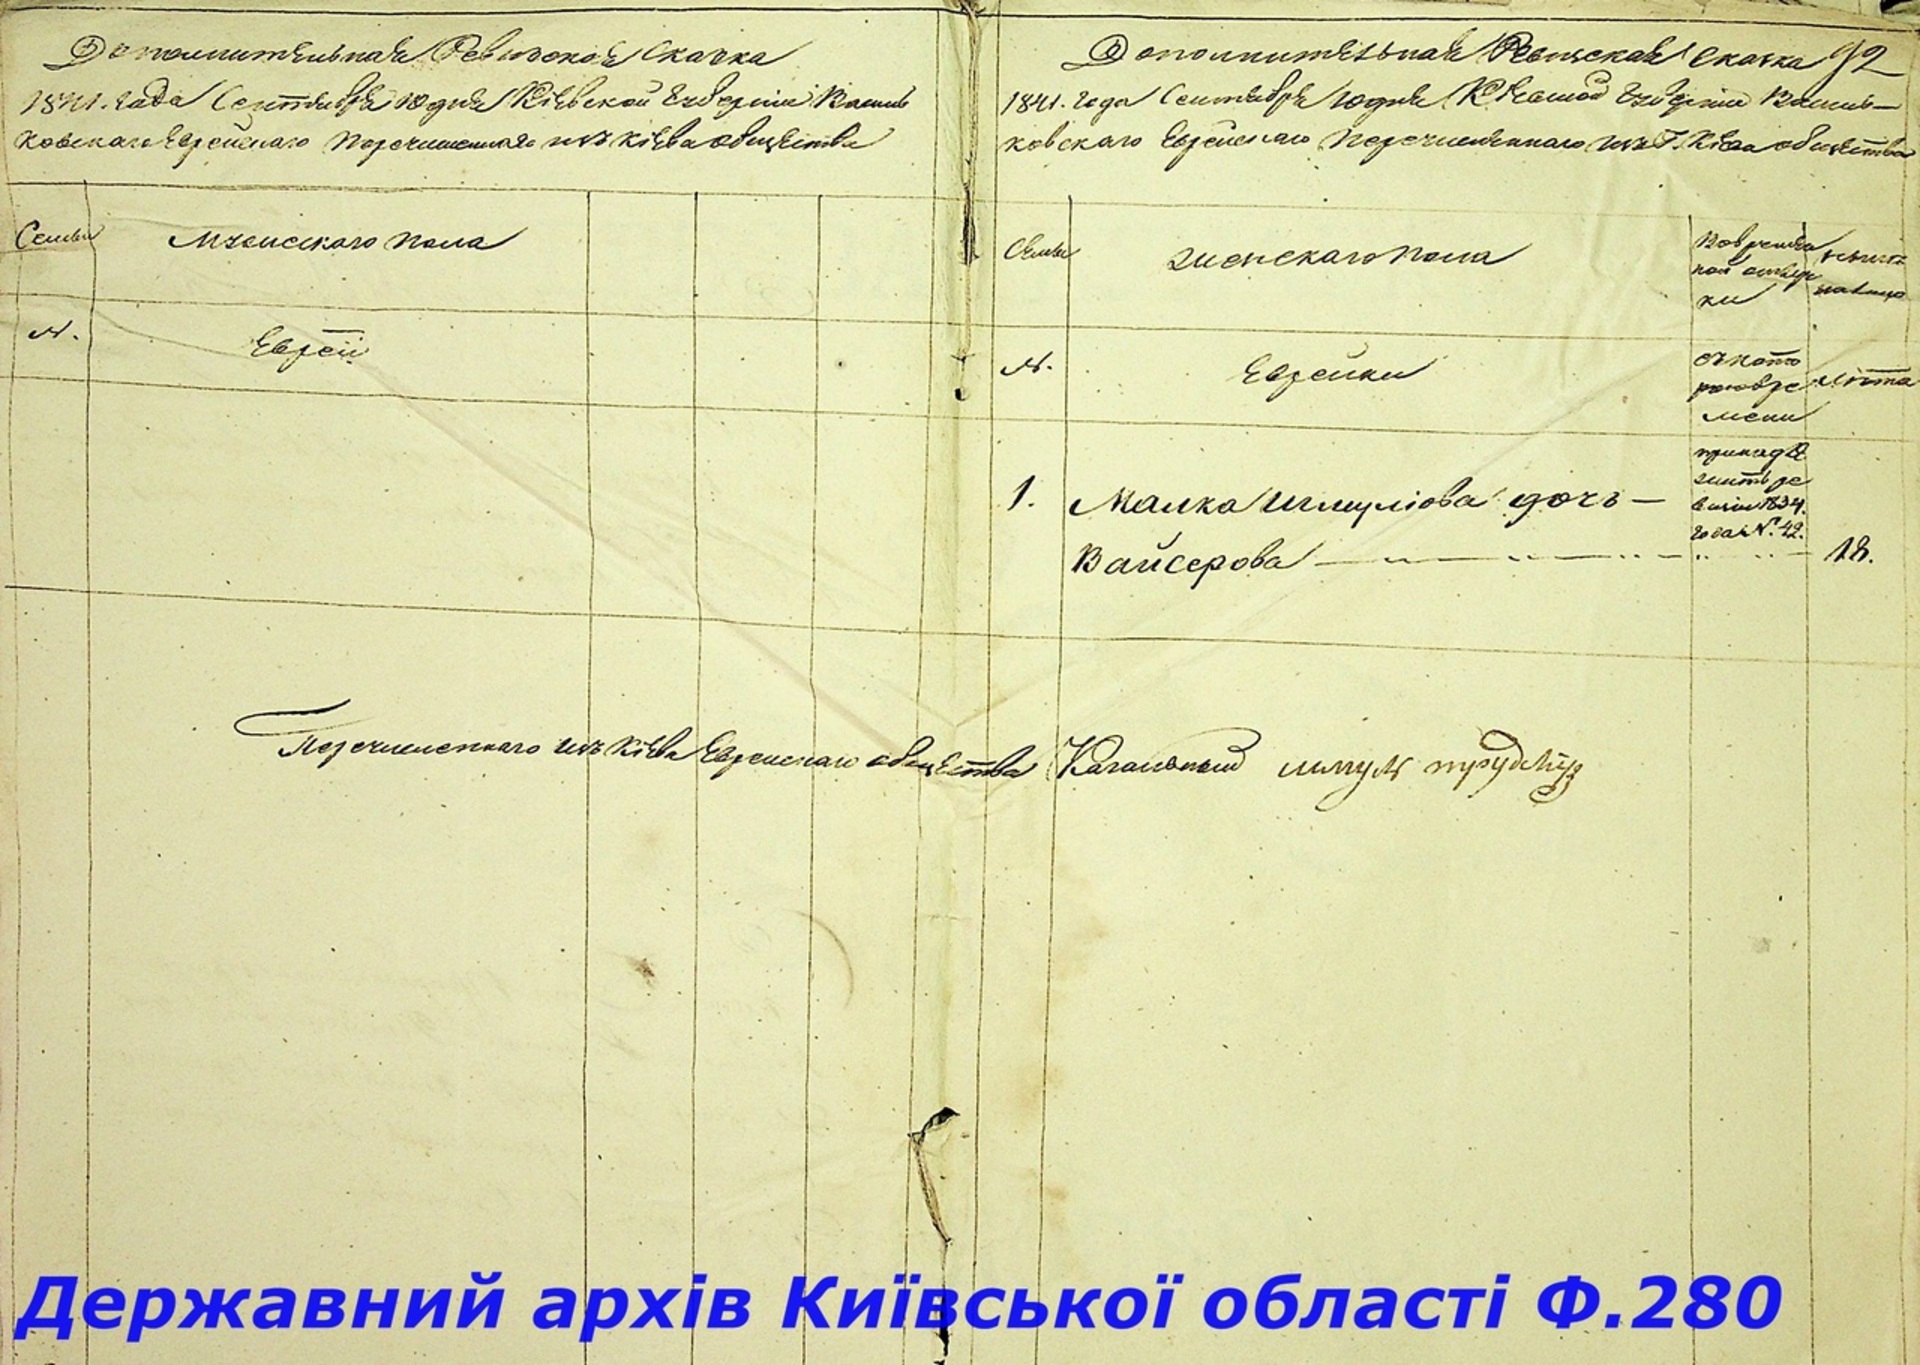 Дополнительная Ревизская Сказка
1841. года Сентября 10 дня Кіевской Губерніи Василь
ковскаго Еврейскаго Перечисленнаго изъ Кіева общества
Семьи
Мужескаго пола
№.
Евреи
Дополнительная Ревизская Сказка 92
1841. года Сентября 10 дня Кіевской Губерніи Василь—
ковскаго Еврейскаго Перечисленнаго изъ Г. Кіева общества
Семьи
Женскаго пола
Во временной отлуч
ки
№.
Еврейки
съ кото
рого вре
мени
лѣта
1. Малка Шмуліова дочь —
Вайсерова
ре
визіи 1834.
года №. 42.
18.
Перечисленнаго изъ Кіева Еврейскаго общества Кагальный Шмуль
Державний архів Київської області Ф.280